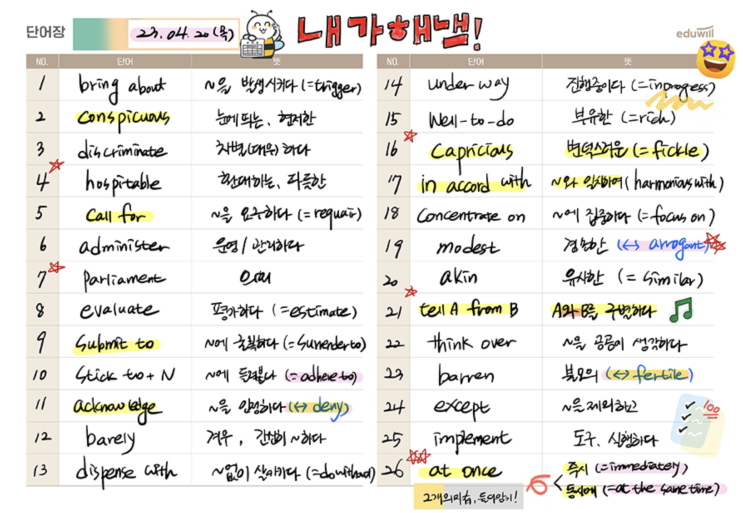 단어장
23.04.20(목)
내가해냄!
eduwill
NO. 단어 뜻
1 bring about ~을 발생시키다 (=trigger)
2 conspicuous 눈에 띄는, 현저한
3 discriminate 차별(대우)하다
4 hospitable 환대하는, 따뜻한
5 call for ~을 요구하다
6 administer 운영/관리하다
7 parliament 의회
8 evaluate 평가하다 (=estimate)
9 submit to ~에 굴복하다 (=surrender to)
10 stick to + N ~에 들러붙다 (=adhere to)
11 acknowledge ~을 인정하다 (↔deny)
12 barely 겨우, 간신히 ~하다
13 dispense with ~없이 살아가다 (=do without)
NO. 단어 뜻
14 under way 진행중이다 (=in progress)
15 Well-to-do 부유한 (=rich)
16 Capricious 변덕스러운 (=fickle)
17 in accord with ~와 일치하여 (harmonious with)
18 concentrate on ~에 집중하다 (=focus on)
19 modest 겸손한 (↔ arrogant)
20 akin 유사한 (= similar)
21 tell A from B A와 B를 구별하다
22 think over ~을 곰곰이 생각하다
23 barren 불모의 (↔ fertile)
24 except ~을 제외하고
25 implement 도구, 시행하다
100
26 at once 즉시 (=immediately)
동시에 (=at the same time)
2개의미, 둘다암기!